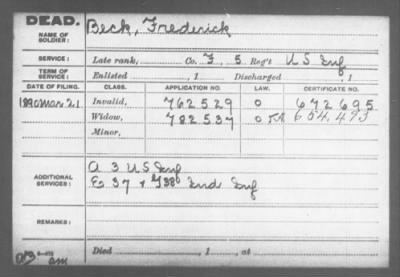 DEAD.
NAME OF SOLDIER: Beck, Frederick
SERVICE: Late rank, Co. F, 5 Reg't U S Inf
TERM OF SERVICE: Enlisted , 1 Discharged , 1
DATE OF FILING. CLASS. APPLICATION NO. LAW. CERTIFICATE NO.
1890 Mar 21 Invalid, 762529 0 672695
Widow, 782537 0 654,493
Minor,
ADDITIONAL SERVICES: A 3 U S Inf
E 37 + F 38 Ind Inf
REMARKS:
Died , 1 , at